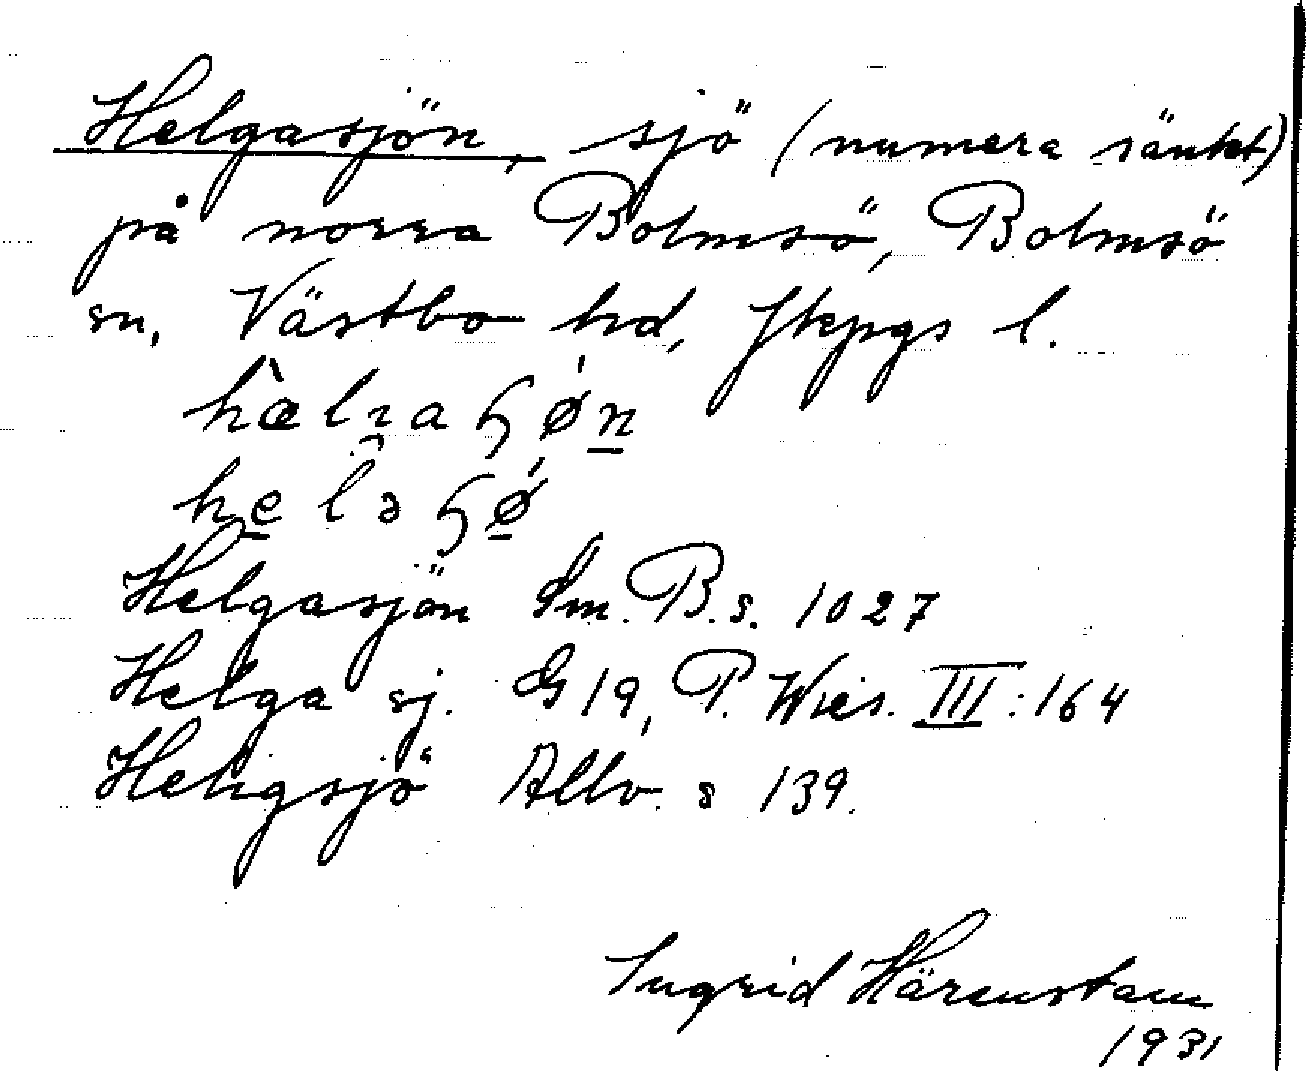 Helgasjön, sjö (numera sänkt)
på norra Bolmsö, Bolmsö
sn, Västbo hd, Jkpgs l.
Helgasjön Sm. B. s. 1027
Helga sj. G19, P. Wies. III:164
Heligsjö Allv. s 139.
Ingrid Härenstam
1931